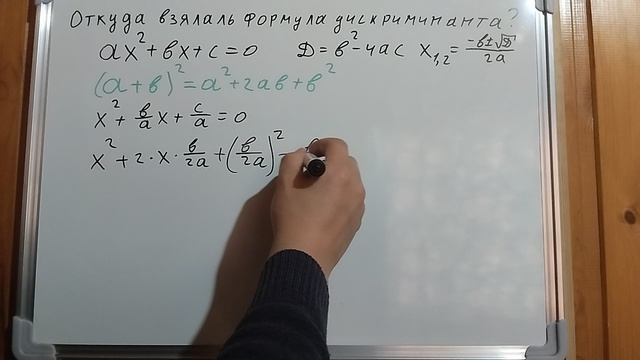 Откуда взялась формула дискриминанта?
ax²+bx+c=0 D=b²-4ac x₁,₂=(-b±√D)/2a
(a+b)²=a²+2ab+b²
x²+b/a x+c/a=0
x²+2·x·b/2a+(b/2a)²